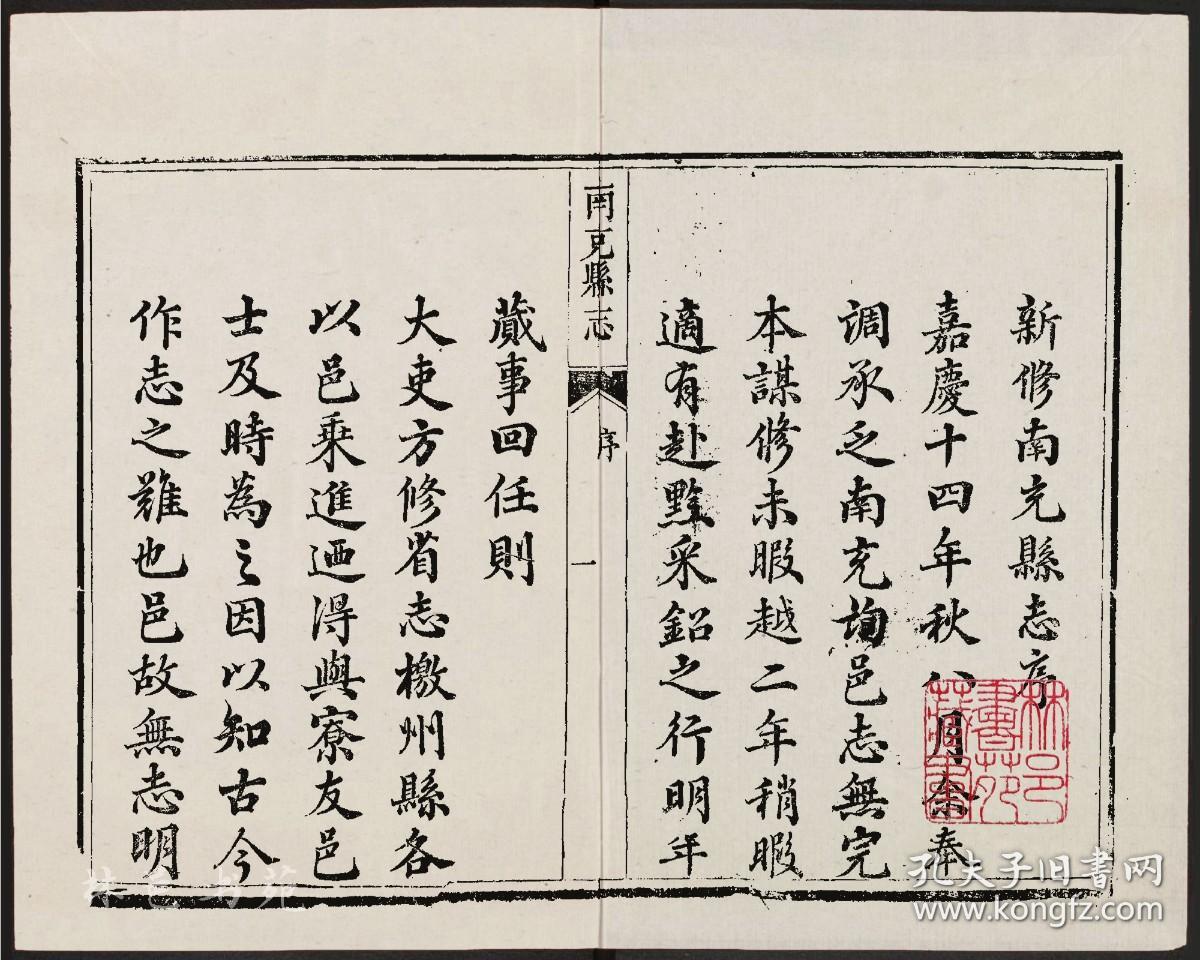 新修南充縣志序
嘉慶十四年秋八月余奉
調承乏南充詢邑志無完
本謀修未暇越二年稍暇
適有赴黔采鉛之行明年
南充縣志
序
一
蕆事回任則
大吏方修省志檄州縣各
以邑乘進迺得與寮友邑
士及時為之因以知古今
作志之難也邑故無志明
林邑書苑藏書
孔夫子旧书网
www.kongfz.com
林邑书苑